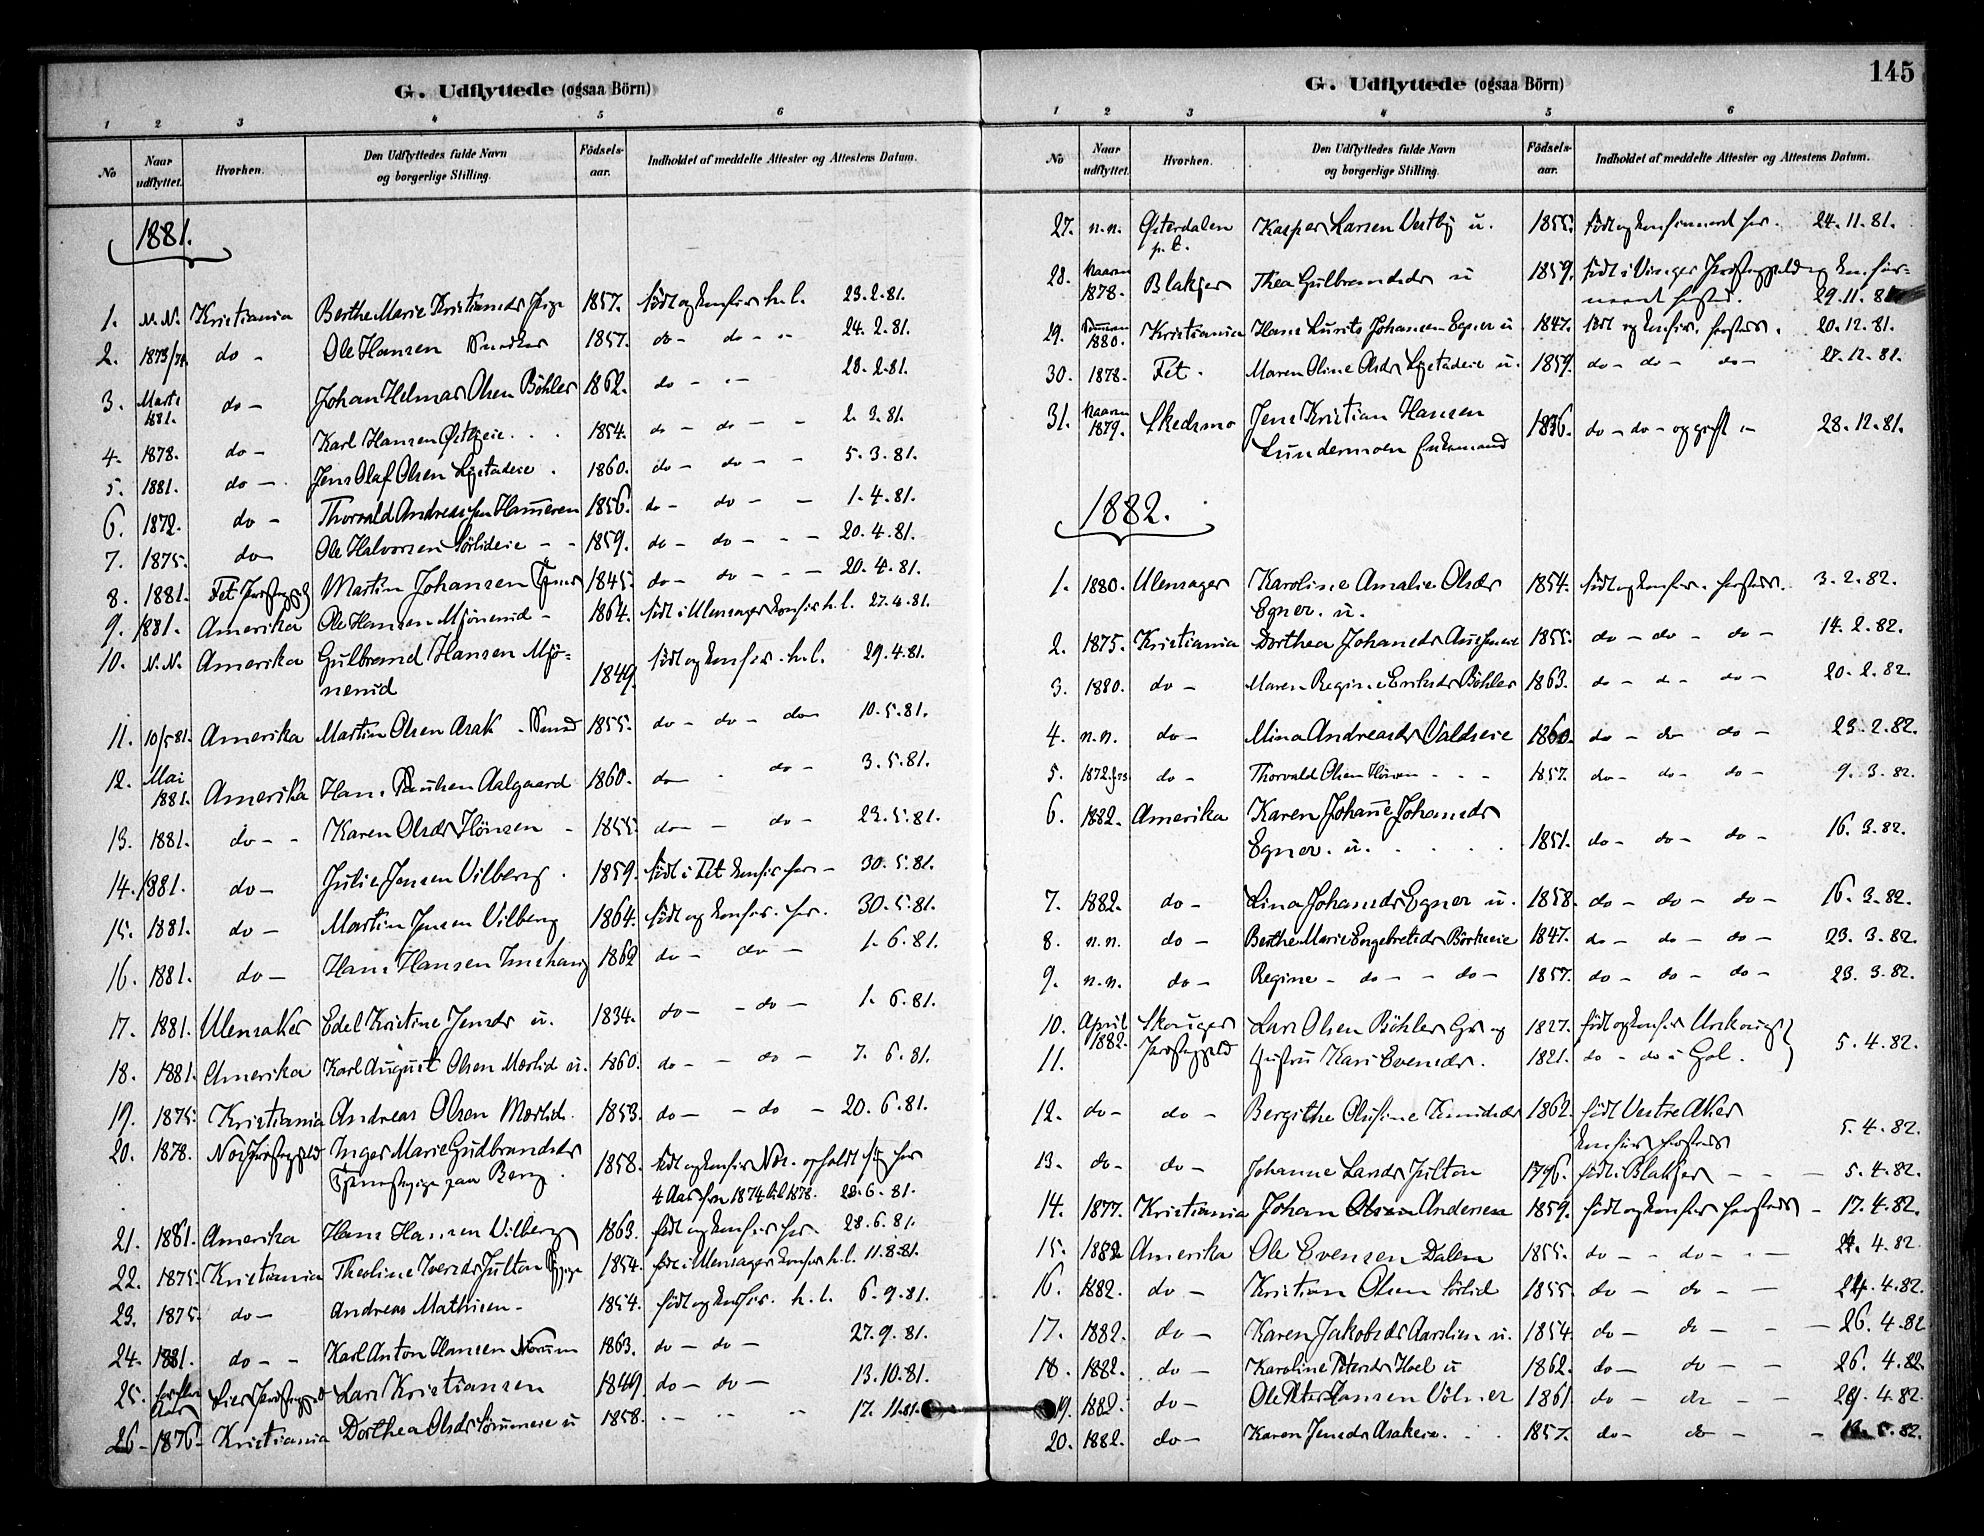 G. Udflyttede (ogsaa Börn)
1 2 3 4 5 6
No Naar udflyttet. Hvorhen. Den Udflyttedes fulde Navn og borgerlige Stilling. Födsels-aar. Indholdet af meddelte Attester og Attestens Datum.
1881.
1. N.N. Kristiania Berthe Marie Kristiansdr Pige 1857. födt og konfir. h.l. 23.2.81.
2. 1873/74 do - Ole Hansen 1857. do - do - 24.2.81.
3. Marts 1881. do - Johan Helmer Olsen Böhler 1862. do - 28.2.81.
4. 1878. do - Karl Hansen Östbyeie 1854. do - do - - 2.3.81.
5. 1881. do - Jens Olaf Olsen Lystadeie 1860. do - do - - 5.3.81.
6. 1872. do - Thorvald Andreassen Hammeren 1856. do - do - - 1.4.81.
7. 1875. do - Ole Halvorsen Sörlideie - - 1859. do - do - - - 20.4.81.
8. 1881. Fet Præstegjeld Martin Johansen 1845. do - do - - - 20.4.81.
9. 1881. Amerika Ole Hansen Mjönerud - 1864. födt i Ulensager konfir h.l. 27.4.81.
10. N.N. Amerika Gulbrand Hansen Mjö-
nerud 1849. födt og konfir. h.l. 29.4.81.
11. 10/5 81. Amerika Martin Olsen Asak 1855. do - do - do 10.5.81.
12. Mai 1881. Amerika Hans Paulsen Aalgaard 1860. do - do - 3.5.81.
13. 1881. do - - Karen Olsdr Hönsen - 1855. do - - do - 23.5.81.
14. 1881. do - Julie Jensen Vilberg. 1859. födt i Fet konfir her - 30.5.81.
15. 1881. do - Martin Jensen Vilberg 1864. födt og konfir. her. 30.5.81.
16. 1881. do - Hans Hansen 1862 do - do - 1.6.81.
17. 1881. Ulensaker Edel Kristine Jensdr u. 1834. do - - do - 1.6.81.
18. 1881. Amerika Karl August Olsen Mærlid u. 1860. do - - do - 7.6.81.
19. 1875. Kristiania Andreas Olsen Mærlid. 1853. do - - do - 20.6.81.
20. 1878. Nes Præstegjeld Inger Marie Gudbrandsdr
Tjenestepige paa Berg. 1858. födt og konfir Nes. opholdt sig her
4 Aar fra 1874 til 1878. 28.6.81.
21. 1881. Amerika Hans Hansen Vilberg 1863. födt og konfir her. 28.6.81.
22. 1875. Kristiania Theoline Iversdr Julton Pige 1854. födt i Ulensager konfir h.l. 11.8.81.
23. 1875. do - Andreas Mathisen - 1854. födt og konfir. h.l. 6.9.81.
24. 1881. do - - Karl Anton Hansen Norum 1863. do - do - 27.9.81.
25. Lier Præstegjeld Lars Kristiansen 1849. do - do - 13.10.81.
26 - 1876. Kristiania Dorthea Olsdr Sörumeie u 1858. 17.11.81.
145
G. Udflyttede (ogsaa Börn)
1 2 3 4 5 6
No Naar udflyttet. Hvorhen. Den Udflyttedes fulde Navn og borgerlige Stilling. Födsels-aar. Indholdet af meddelte Attester og Attestens Datum.
27. n.n. Østerdalen p.t. Kasper Larsen Vestby u. 1855. födt og konfirmeret her. 24.11.81.
28. Vaaren 1878. Blakjer Thea Gulbrandsdr u 1859. födt i Vinger Præstegjeld og konfir-
meret 29.11.81
19. 1880. Kristiania Hans Lurits Johansen Egner u 1847. födt og konfir. hersteds. 20.12.81.
30. 1878. Fet. Maren Oline Olsdr Lystadeie u. 1859. do - do - do - 27.12.81.
31. Vaaren 1879. Skedsmo Jens Kristian Hansen
Lundermoen Enkemand 1836. do - do - og gift 28.12.81.
1882.
1. 1880. Ulensager Karoline Amalie Olsdr
Egner. u. 1854. födt og konfir. hersteds. 3.2.82.
2. 1875. Kristiania Dorthea Johansdr 1855. do - do - do - 14.2.82.
3. 1880. do - Maren Regine Eriksdr Böhler 1863. do - do - do - 20.2.82.
4. n.n. do - Mina Andreasdr Valdseie 1860. do - do - do - 23.2.82.
5. 1872/73 do - Thorvald Olsen - - - 1857. do - do - do - 9.3.82.
6. 1882. Amerika Karen Johanne Johansdr
Egner. u. 1851. do - do - do - 16.3.82.
7. 1882. do - Lina Johansdr Egner u. 1858. do - do - do - 16.3.82.
8. n.n. do - Berthe Marie Engebretsdr Börkeeie 1847. do - do - do - 23.3.82.
9. n.n. do - Regine - do - - do - 1857. do - do - do - 23.3.82.
10. April 1882. Skouger Præstegjeld Lars Olsen Böhler Gr og 1827. födt og konfir Urskoug
11. Hustru Kari Evensdr. 1821. do - do i Gol. 5.4.82.
12. do - do - Bergithe Olufine Knudsdr 1862. födt Vestre Aker
konfir hersteds 5.4.82.
13. do - do - Johanne Larsdr Julton 1796. födt i Blakjer - - - 5.4.82.
14. 1877. Kristiania Johan Olsen Andersen 1859. födt og konfir hersteds - 17.4.82.
15. 1882 Amerika Ole Evensen Dalen 1855. do - - do - 4.82.
16. 1882. do - Kristian Olsen Sörlid 1855. do - do - - 24.4.82.
17. 1882. do - Karen Jakobsdr u. 1854. do - do - - 26.4.82
18. 1882. do - Karoline Petersdr Hoel u 1862. do - do - - 26.4.82.
19. 1882. do - Ole Peter Hansen Völner 1861. do - do - 4.82.
20. 1882. do - Karen Jensdr Asakeie. 1857. do - do - - 5.82.